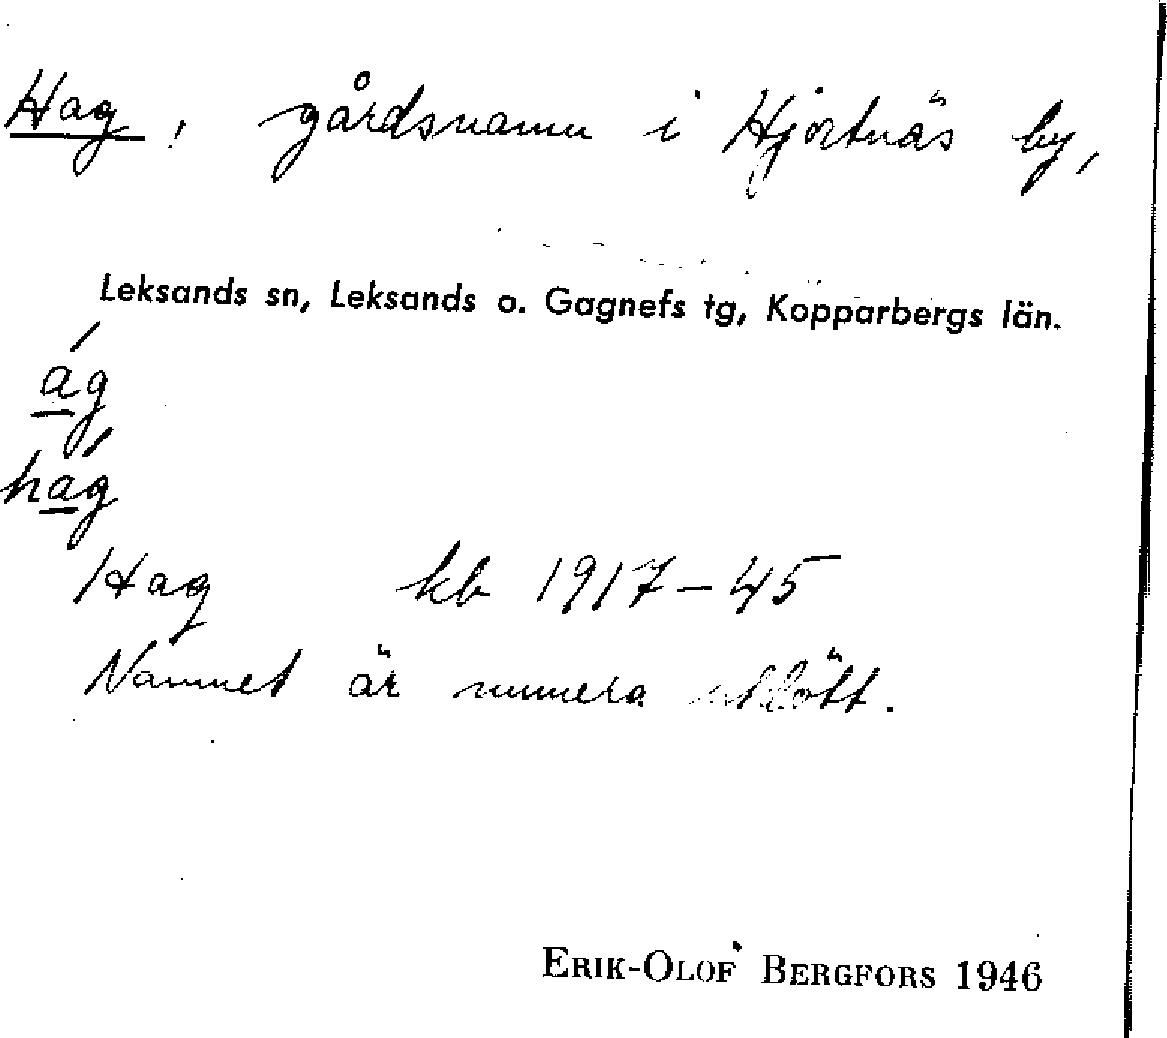 Hag, gårdsnamn i Hjortnäs by,
Leksands sn, Leksands o. Gagnefs tg, Kopparbergs län.
ág
hág
Hag kb 1917-45
Namnet är numera utdött.
ERIK-OLOF BERGFORS 1946